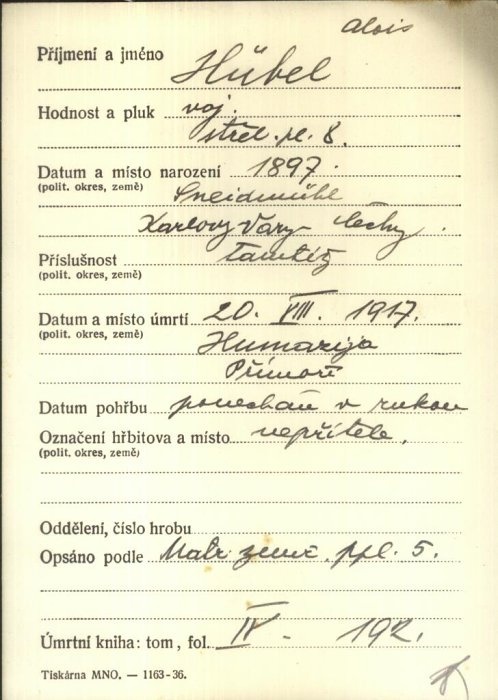 Alois
Příjmení a jméno Hübel
Hodnost a pluk voj.
střel. pl. 8.
Datum a místo narození 1897.
(polit. okres, země) Sneidmühl
Karlovy Vary Čechy.
Příslušnost tamtéž
(polit. okres, země)
Datum a místo úmrtí 20. VIII. 1917.
(polit. okres, země) Humarija
Přímoří
Datum pohřbu ponechán v rukou
Označení hřbitova a místo nepřítele.
(polit. okres, země)
Oddělení, číslo hrobu
Opsáno podle Matr zemř. ppl. 5.
Úmrtní kniha: tom, fol. IV - 192.
Tiskárna MNO. — 1163-36.